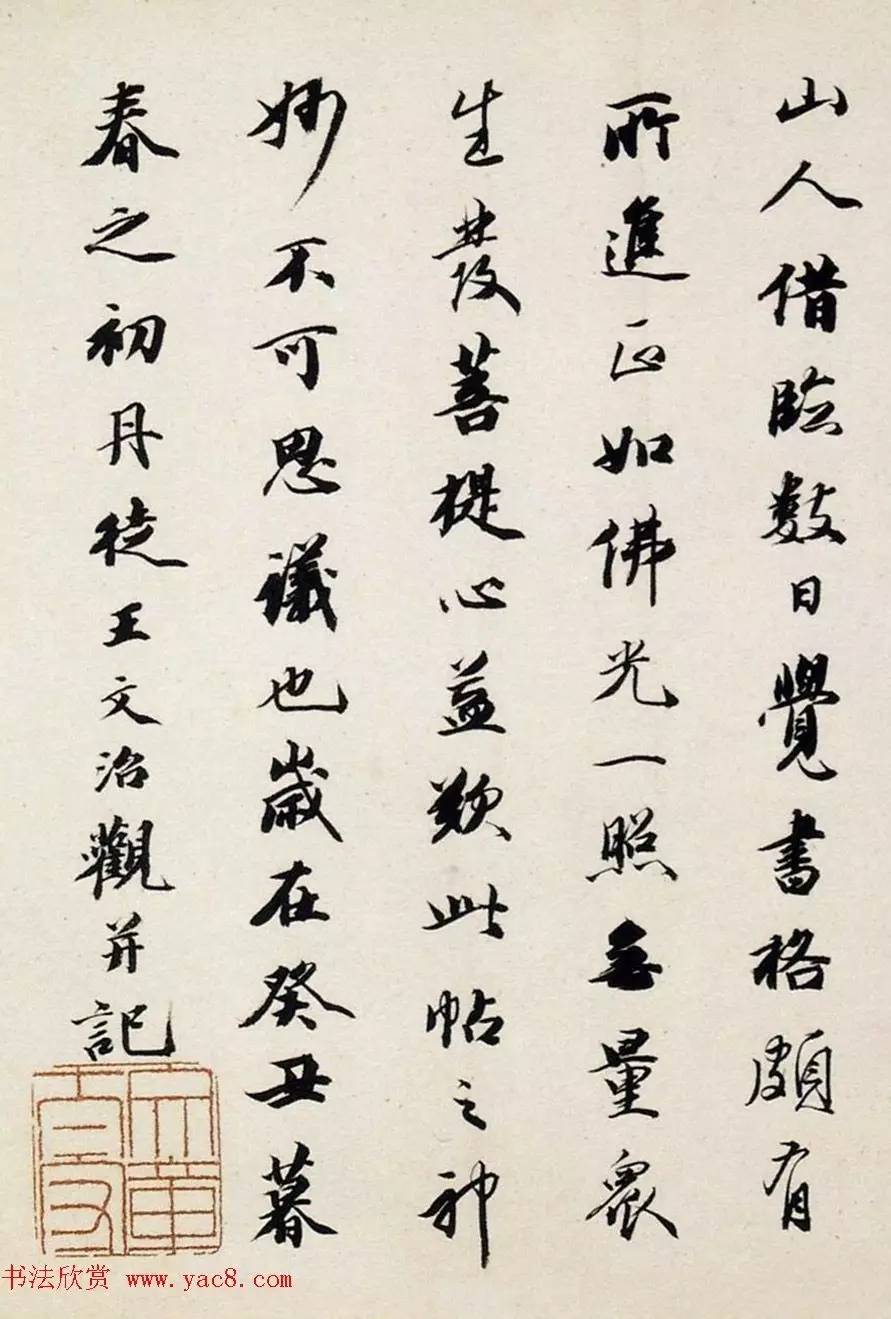 山人借臨數日覺書格頗有
所進正如佛光一照無量眾
生發菩提心益歎此帖之神
妙不可思議也歲在癸丑暮
春之初丹徒王文治觀并記
书法欣赏 www.yac8.com